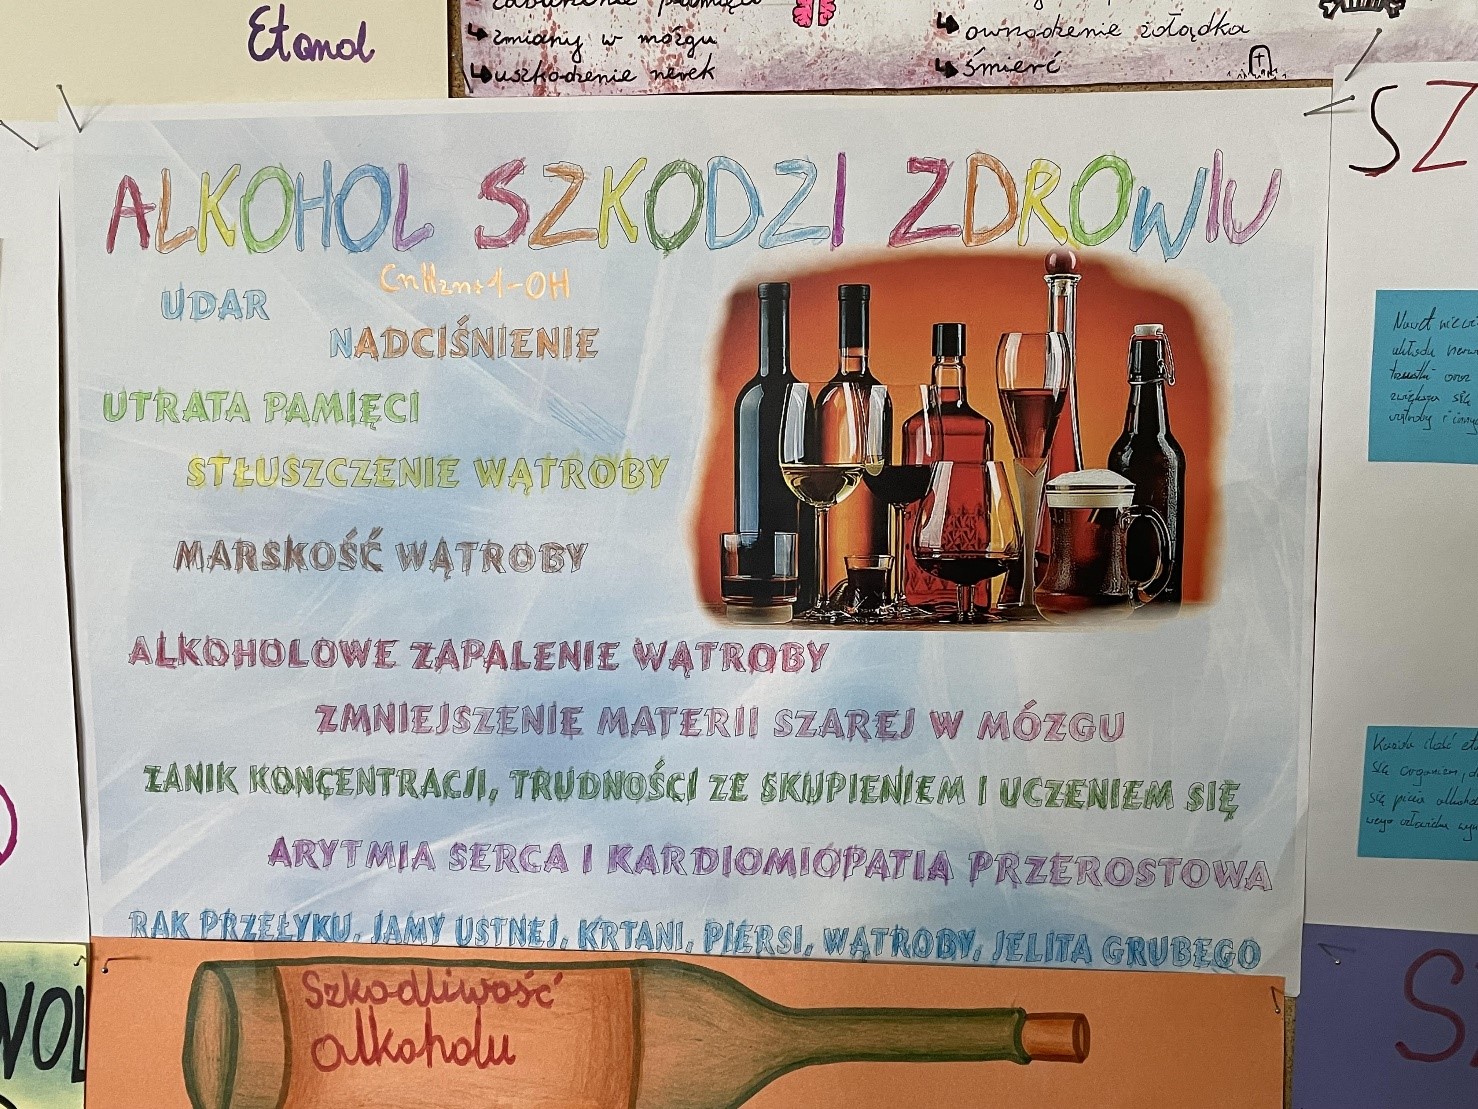 Etanol
zmiany w mózgu
uszkodzenie nerek
owrzodzenie żołądka
śmierć
ALKOHOL SZKODZI ZDROWIU
CnH2n+1-OH
UDAR
NADCIŚNIENIE
UTRATA PAMIĘCI
STŁUSZCZENIE WĄTROBY
MARSKOŚĆ WĄTROBY
ALKOHOLOWE ZAPALENIE WĄTROBY
ZMNIEJSZENIE MATERII SZAREJ W MÓZGU
ZANIK KONCENTRACJI, TRUDNOŚCI ZE SKUPIENIEM I UCZENIEM SIĘ
ARYTMIA SERCA I KARDIOMIOPATIA PRZEROSTOWA
RAK PRZEŁYKU, JAMY USTNEJ, KRTANI, PIERSI, WĄTROBY, JELITA GRUBEGO
SZ
układu
oraz
zwiększa się
wątroby i
Każda ilość
się organizm,
się picia
Szkodliwość
alkoholu